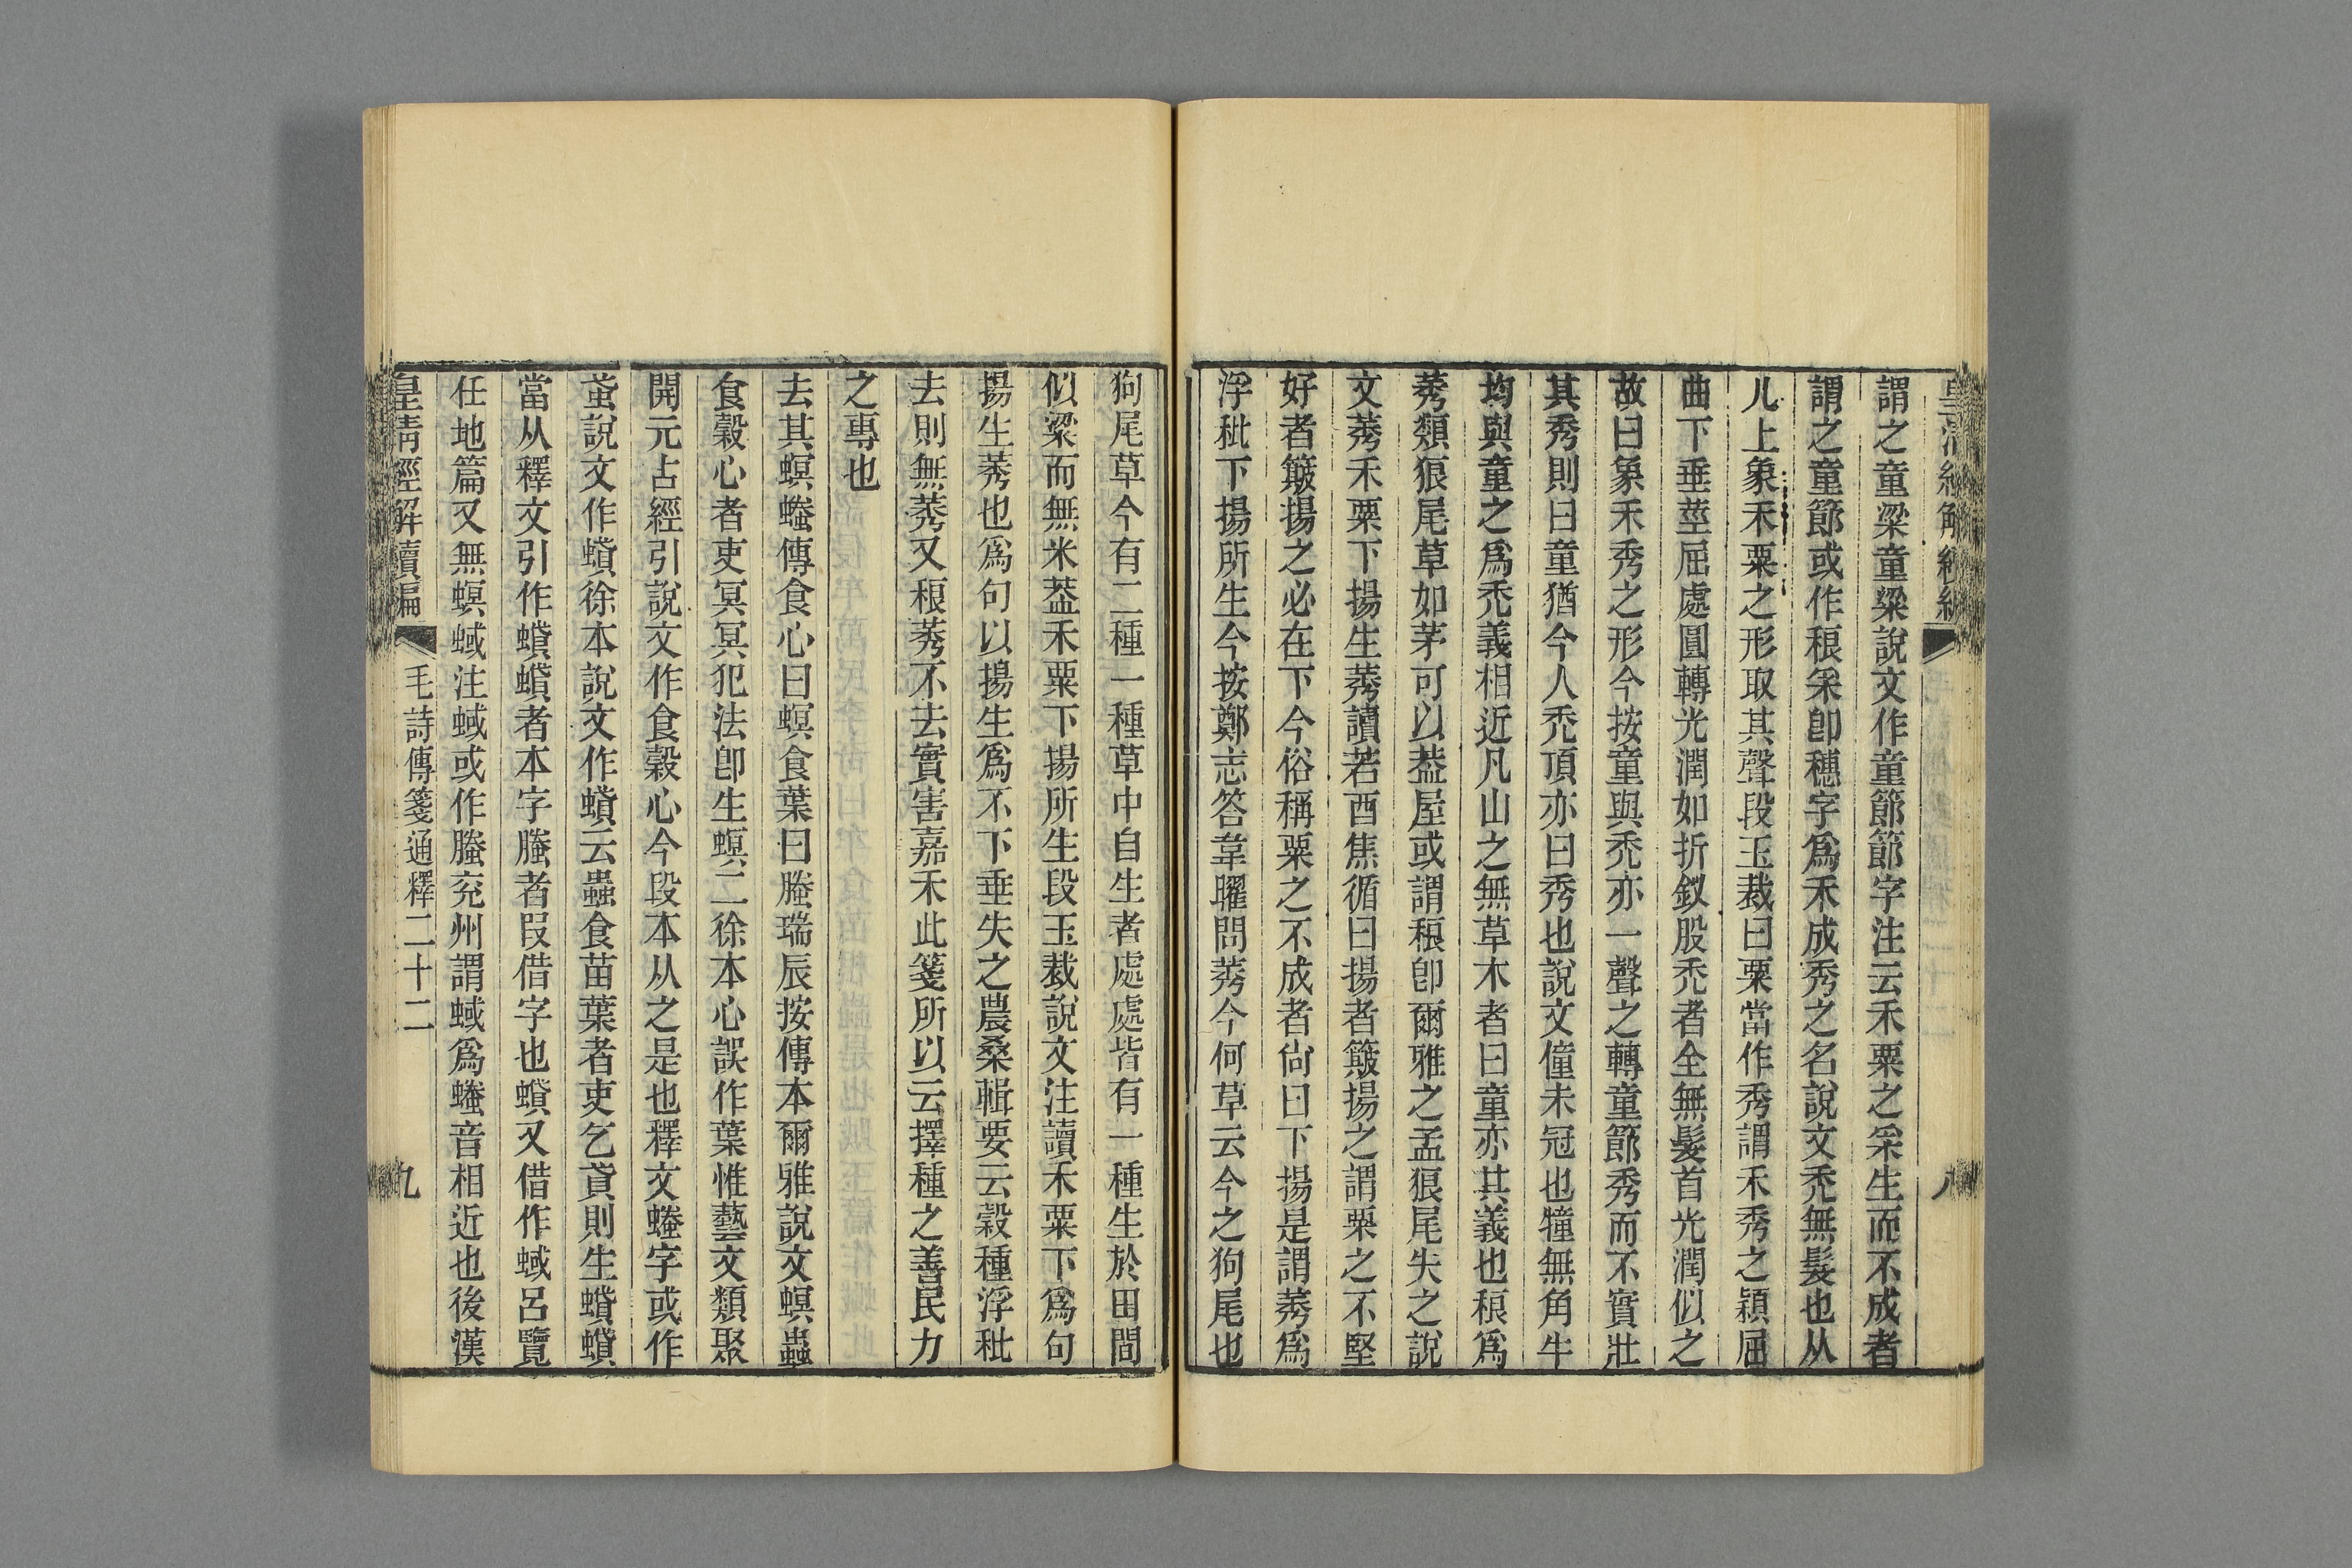 謂之童梁童粱說文作童節節字注云禾粟之采生而不成者
謂之童節或作稂采卽穗字爲禾成秀之名說文禿無髮也从
儿上象禾粟之形取其聲段玉裁曰粟當作秀謂禾秀之穎屈
曲下垂莖屈處圓轉光潤如折釵股禿者全無髮首光潤似之
故曰象禾秀之形今按童與禿亦一聲之轉童節秀而不實壯
其秀則曰童猶今人禿頂亦曰秀也說文僮未冠也犝無角牛
均與童之爲禿義相近凡山之無草木者曰童亦其義也稂爲
莠類狼尾草如茅可以葢屋或謂稂卽爾雅之孟狼尾失之說
文莠禾粟下揚生莠讀若酉焦循曰揚者簸揚之謂粟之不堅
好者簸揚之必在下今俗稱粟之不成者尙曰下揚是謂莠爲
浮秕下揚所生今按鄭志答韋曜問莠今何草云今之狗尾也
狗尾草今有二種一種草中自生者處處皆有一種生於田間
似粱而無米葢禾粟下揚所生段玉裁說文注讀禾粟下爲句
揚生莠也爲句以揚生爲不下垂失之農桑輯要云穀種浮秕
去則無莠又稂莠不去實害嘉禾此箋所以云擇種之善民力
之專也
去其螟螣傳食心曰螟食葉曰螣瑞辰按傳本爾雅說文螟蟲
食穀心者吏冥冥犯法卽生螟二徐本心誤作葉惟藝文類聚
開元占經引說文作食穀心今段本从之是也釋文螣字或作
蟘說文作蟘徐本說文作蟘云蟲食苗葉者吏乞貣則生蟘蟘
當从釋文引作蟘蟘者本字螣者叚借字也蟘又借作蜮呂覽
任地篇又無螟蜮注蜮或作螣兖州謂蜮爲螣音相近也後漢
皇清經解續編　毛詩傳箋通釋二十二　九